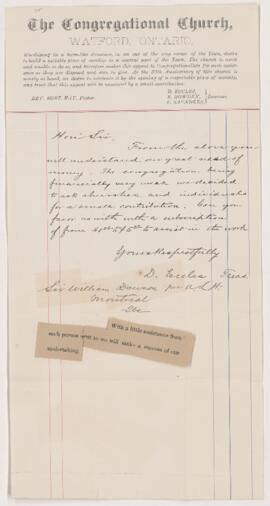 The Congregational Church,
WATFORD, ONTARIO.
Worshipping in a barn-like structure, in an out of the way corner of the Town, desire
to build a suitable place of worship in a central part of the Town. The church is weak
and unable to do so, and therefore makes this appeal to Congregationalists for such assist-
ance as they are disposed and able to give. As the 50th Anniversary of this church
is nearly at hand, we desire to celebrate it by the opening of a respectable place of worship,
and trust that this appeal will be answered by a small contribution.
D. ECCLES,
REV. ROBT. HAY, Pastor. Deacons
P. SAUNDERS
Hon. Sir.
From the above you
will understand our great need of
money. The congregation being
financially very weak we decided
to ask churches and individuals
for a small contribution. Can you
favor us with a subscription
of from to assist in the work
Yours Respectfully
D. Eccles Treas
Sir William Dawson per
Montreal
Que
With a little assistance from
each person sent to we will make a success of our
undertaking.